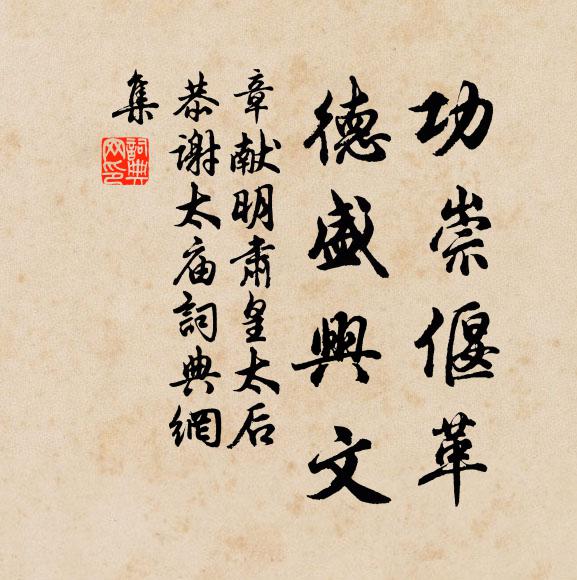 功崇偃革
德盛興文
章献明肅皇太后
恭谢太庙詞典網
集
詞典
网印